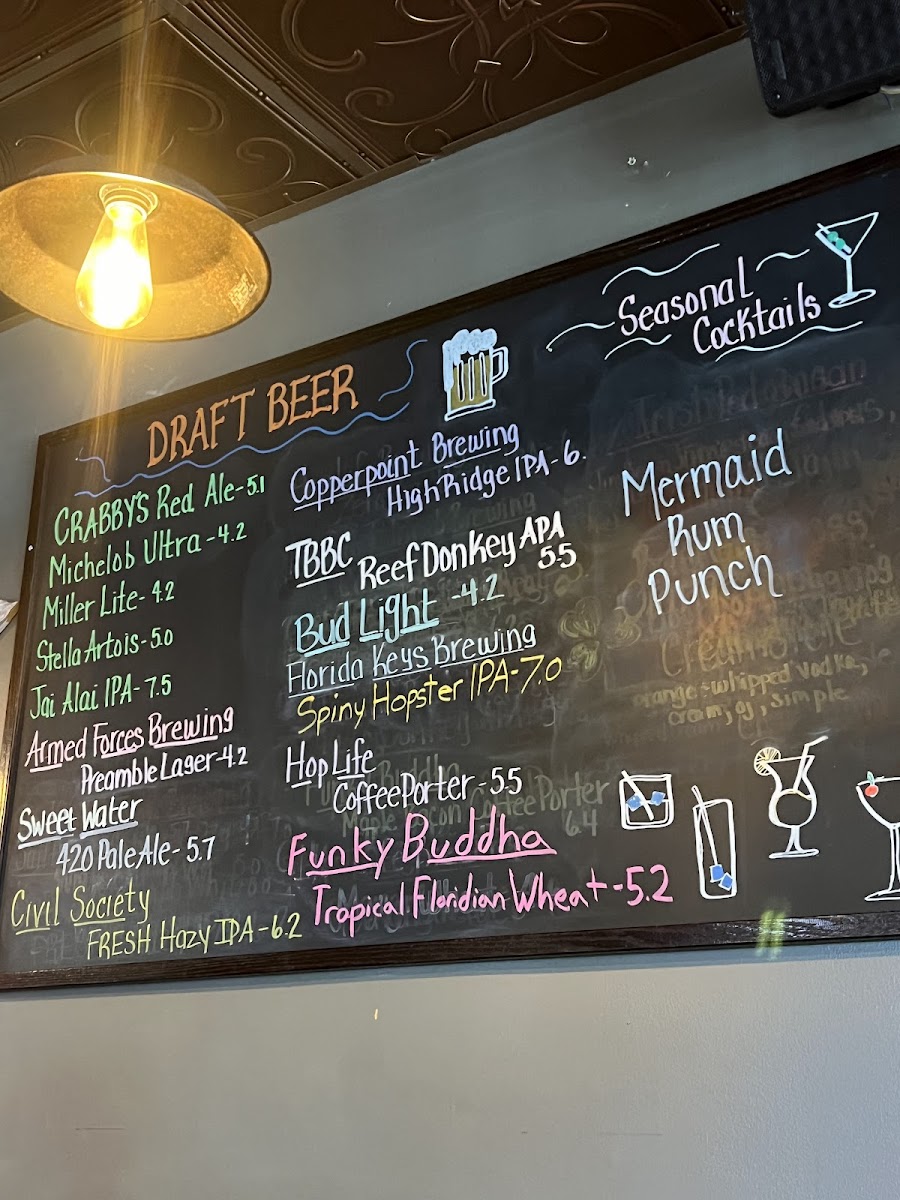 DRAFT BEER
CRABBY'S Red Ale-5.1
Michelob Ultra-4.2
Miller Lite-4.2
Stella Artois-5.0
Jai Alai IPA-7.5
Armed Forces Brewing
Preamble Lager-4.2
Sweet Water
420 Pale Ale-5.7
Civil Society
FRESH Hazy IPA-6.2
Copperpoint Brewing
High Ridge IPA-6.
TBBC
Reef Donkey APA
5.5
Bud Light-4.2
Florida Keys Brewing
Spiny Hopster IPA-7.0
Hop Life
Coffee Porter-5.5
Maple Bacon Coffee Porter
6.4
Funky Buddha
Tropical Floridian Wheat-5.2
Seasonal
Cocktails
Mermaid
Rum
Punch
orange-whipped vodka,
cream, oj, simple